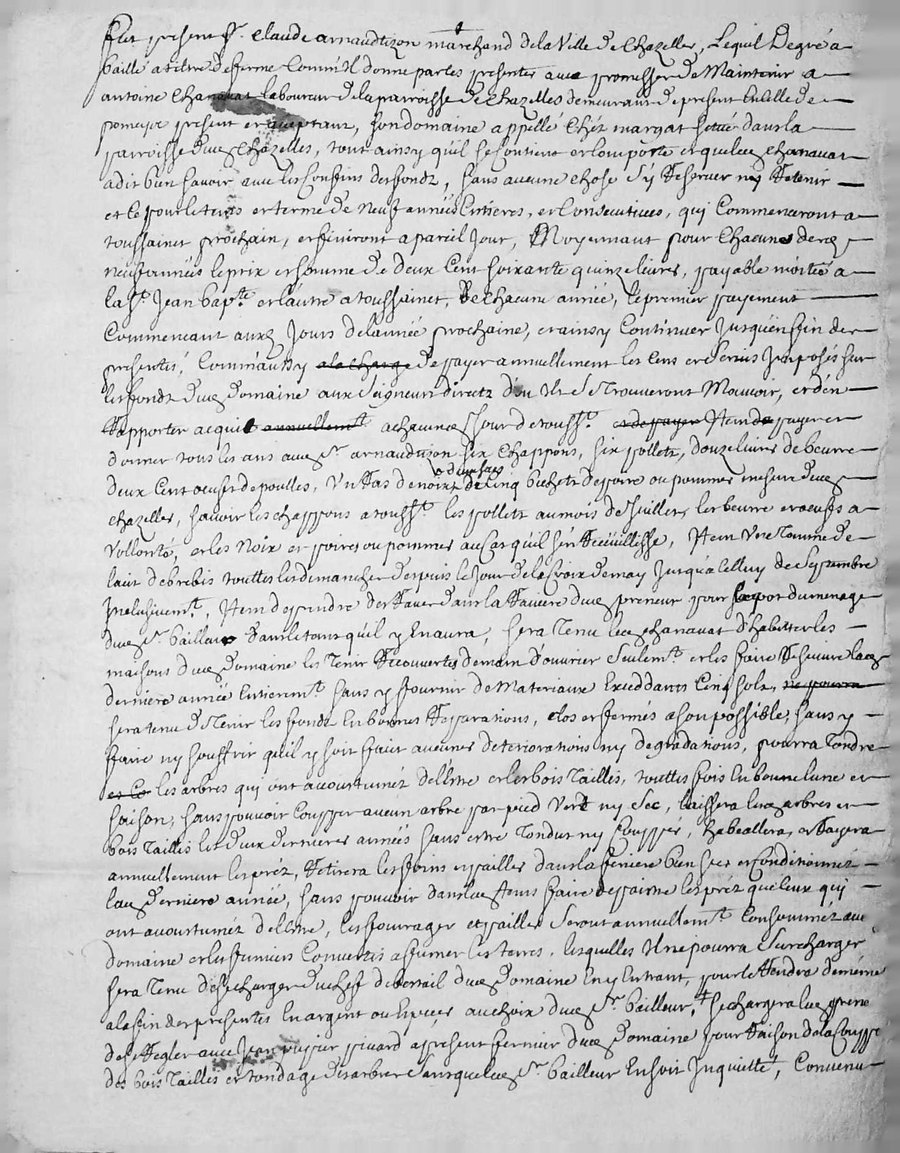 fut present Sr. Claude arnaudtizon marchand de la Ville de Chazelles, Lequel De gré a
baillé a titre de ferme Comm'Il donne par les presentes avec promesse de Maintenir a
antoine Chanavat laboureur de la parroisse de Chazelles demeurant de present
pomeys present et acceptant, son domaine appellé Chéz margat scitué dans la
parroisse dud Chazelles, tout ainsy quil se Contient et Comporte et que led Chanavat
a dit bien scavoir avec les Confins des fondz, sans aucune chose s'y Reserver ny Retenir
et Ce pour le tems et terme de Neuf années Entieres, et Consecutives, qui Commenceront a
toussaint prochain, et finiront a pareil Jour, Moyennant pour Chacune desd
neuf années le prix et somme de deux Cent soixante quinze livres, payable moitié a
la St. Jean bapte. et l'autre a toussainct, de chacune année, le premier payement
Commencant auxd Jours de l'année prochaine, et ainsy Continuer Jusqu'en fin des
presentes, Comm'aussy a la charge de payer annuellement les Cens et servis Imposés sur
les fondz dud Domaine aux seigneurs directz d'ou Ils se trouveront Mouvoir, et d'en
Rapporter acquit annuellemt. a chacun Jour de touss. et de payer Item de payer et
donner tous les ans aud Sr. arnaudtizon six Chappons, six pollets, douze livres de beurre
deux Cent oeufs de poulles, Un Ras de noix, Cinq bichets de poire ou pommes mesure dud
Chazelles, scavoir les chappons a touss. les pollets au mois de Juillet, le beurre et oeufs a
Vollonté, et les Noix et poires ou pommes au Cas qu'il s'en Recüeillisse, Item Une Tomme de
lait de brebis touttes les dimanches depuis le Jour de la Croix de may Jusqu'a Celluy de septembre
Inclusivemt., Item de prendre des Raves dans la Raviere dud preneur pour du menage
dud Sr. bailleur dans le tems qu'il y En aura, sera Tenu led Chanavat d'habiter les
maisons dud Domaine les Tenir Recouvertes de main d'ouvrier seulemt. et les faire
derniere année Entieremt. sans y fournir de Materiaux Exceddants Cinq sols, ne pourra
sera tenu de Tenir les fondz En bonnes Reparations, clos et fermés a son possible, sans y
faire ny souffrir qu'il y soit fait aucunes deteriorations ny degradations, pourra Tondre
et Co les arbres qui ont accoutuméz de l'Etre et les bois Taillés, touttes fois En bonne lune et
saison, sans pouvoir Coupper aucun arbre par pied Vert ny sec, laissera lesd arbres et
bois Taillis les deux dernieres années sans estre tondus ny Couppés, et
annuellement les préz, Retirera les foins et pailles dans la feniere bien secs et Conditionnéz
lad derniere année, sans pouvoir dans led tems faire depaitre les préz que Ceux qui
ont accoutuméz de l'Etre, les fourrages et pailles seront annuellemt. Consomméz aud
domaine et les fumiers Convertis a fumer les terres, lesquelles Il ne pourra surcharger
sera Tenu de se charger du chef de betail dud Domaine En y Entrant, pour le Rendre de même
a la fin des presentes En argent ou Especes au choix dud Sr. bailleur, se chargera led preneur
de se Regler avec Jean pivard a present fermier dud Domaine pour Raison de la Couppe
des bois Taillés et tondage des arbres sans que led Sr. bailleur En soit Inquietté, Convenu